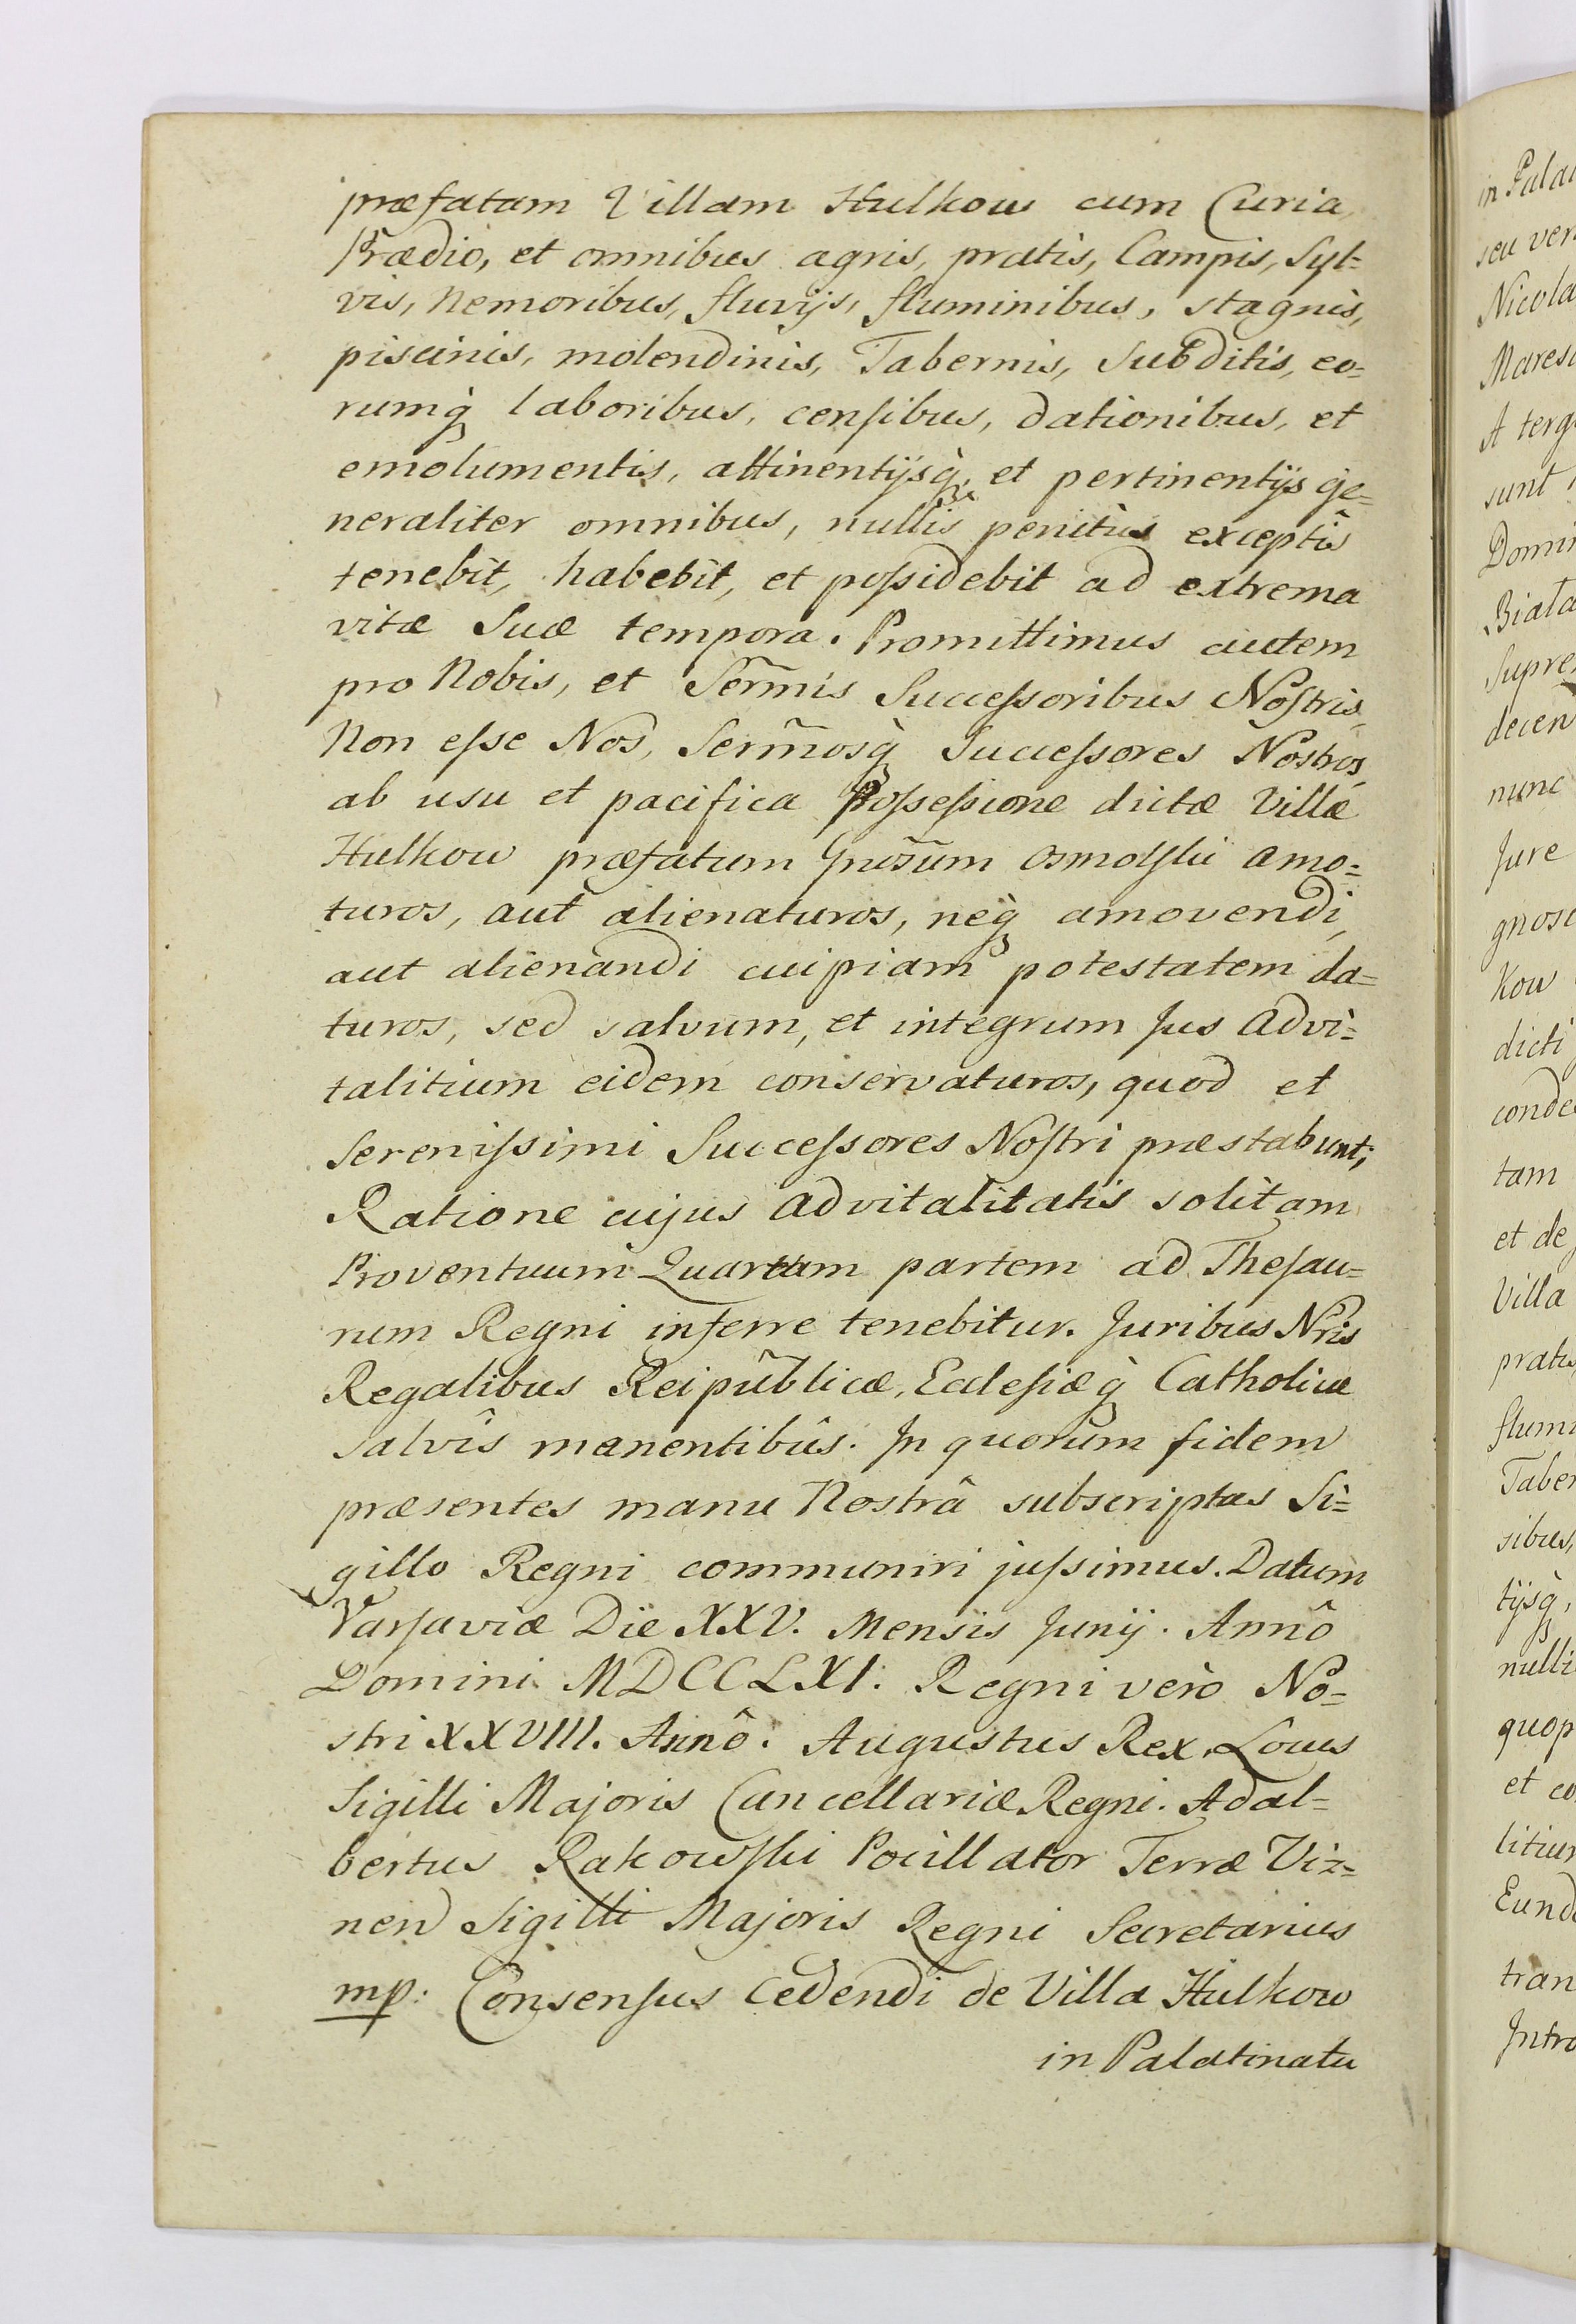 præfatam Villam Hulkow cum Curia,
Prædio, et omnibus agris, pratis, Campis, Syl=
vis, Nemoribus, fluvijs, fluminibus, stagnis,
piscinis, molendinis, Tabernis, Subditis, eo=
rumq̀ laboribus, censibus, dationibus, et
emolumentis, attinentijsq̀, et pertinentijs ge=
neraliter omnibus, nullis penitùs exceptis
tenebit, habebit, et possidebit ad extrema
vitæ Suæ tempora. Promittimus autem
pro Nobis, et Serm̃is Successoribus Nostris,
Non esse Nos, Serm̃osq̀ Successores Nostros,
ab usu et pacifica Possessione dictæ Villæ
Hulkow præfatum Gnosũm Osmolski amo=
turos, aut alienaturos, neq̀ amovendi,
aut alienandi cuipiam potestatem da=
turos, sed salvum, et integrum Jus Advi=
talitium eidem conservaturos, quod et
Serenissimi Successores Nostri præstabunt;
Ratione cujus advitalitatis solitam
Proventuum Quartam partem ad Thesau=
rum Regni inferre tenebitur. Juribus Nr̃is
Regalibus Reipûblicæ, Ecclesiæq̀ Catholicæ
salvîs manentibûs. In quorum fidem
præsentes manu Nostrâ subscriptas Si=
gillo Regni communiri jussimus. Datum
Varsaviæ Die XXV. Mensis Junij. Annô
Domini MDCCLXI. Regni verò No=
stri XXVIII. Annô. Augustus Rex. Locus
Sigilli Majoris Cancellariæ Regni. Adal=
bertus Rakowski Pocillator Terræ Viz=
nen Sigilli Majoris Regni Secretarius
mp: Consensus Cedendi de Villa Hulkow
in Palatinatu
in Pala
seu ver
Nicola
Maresc
A terg
sunt
Domi
Biała
Supre
decen
nunc
Jure
gnos
Kow
dicti
conde
tam
et de
Villa
pratis
flumi
Taber
sibus,
tijsq̀,
nulli
quop
et co
litiu
Eund
tran
Intro